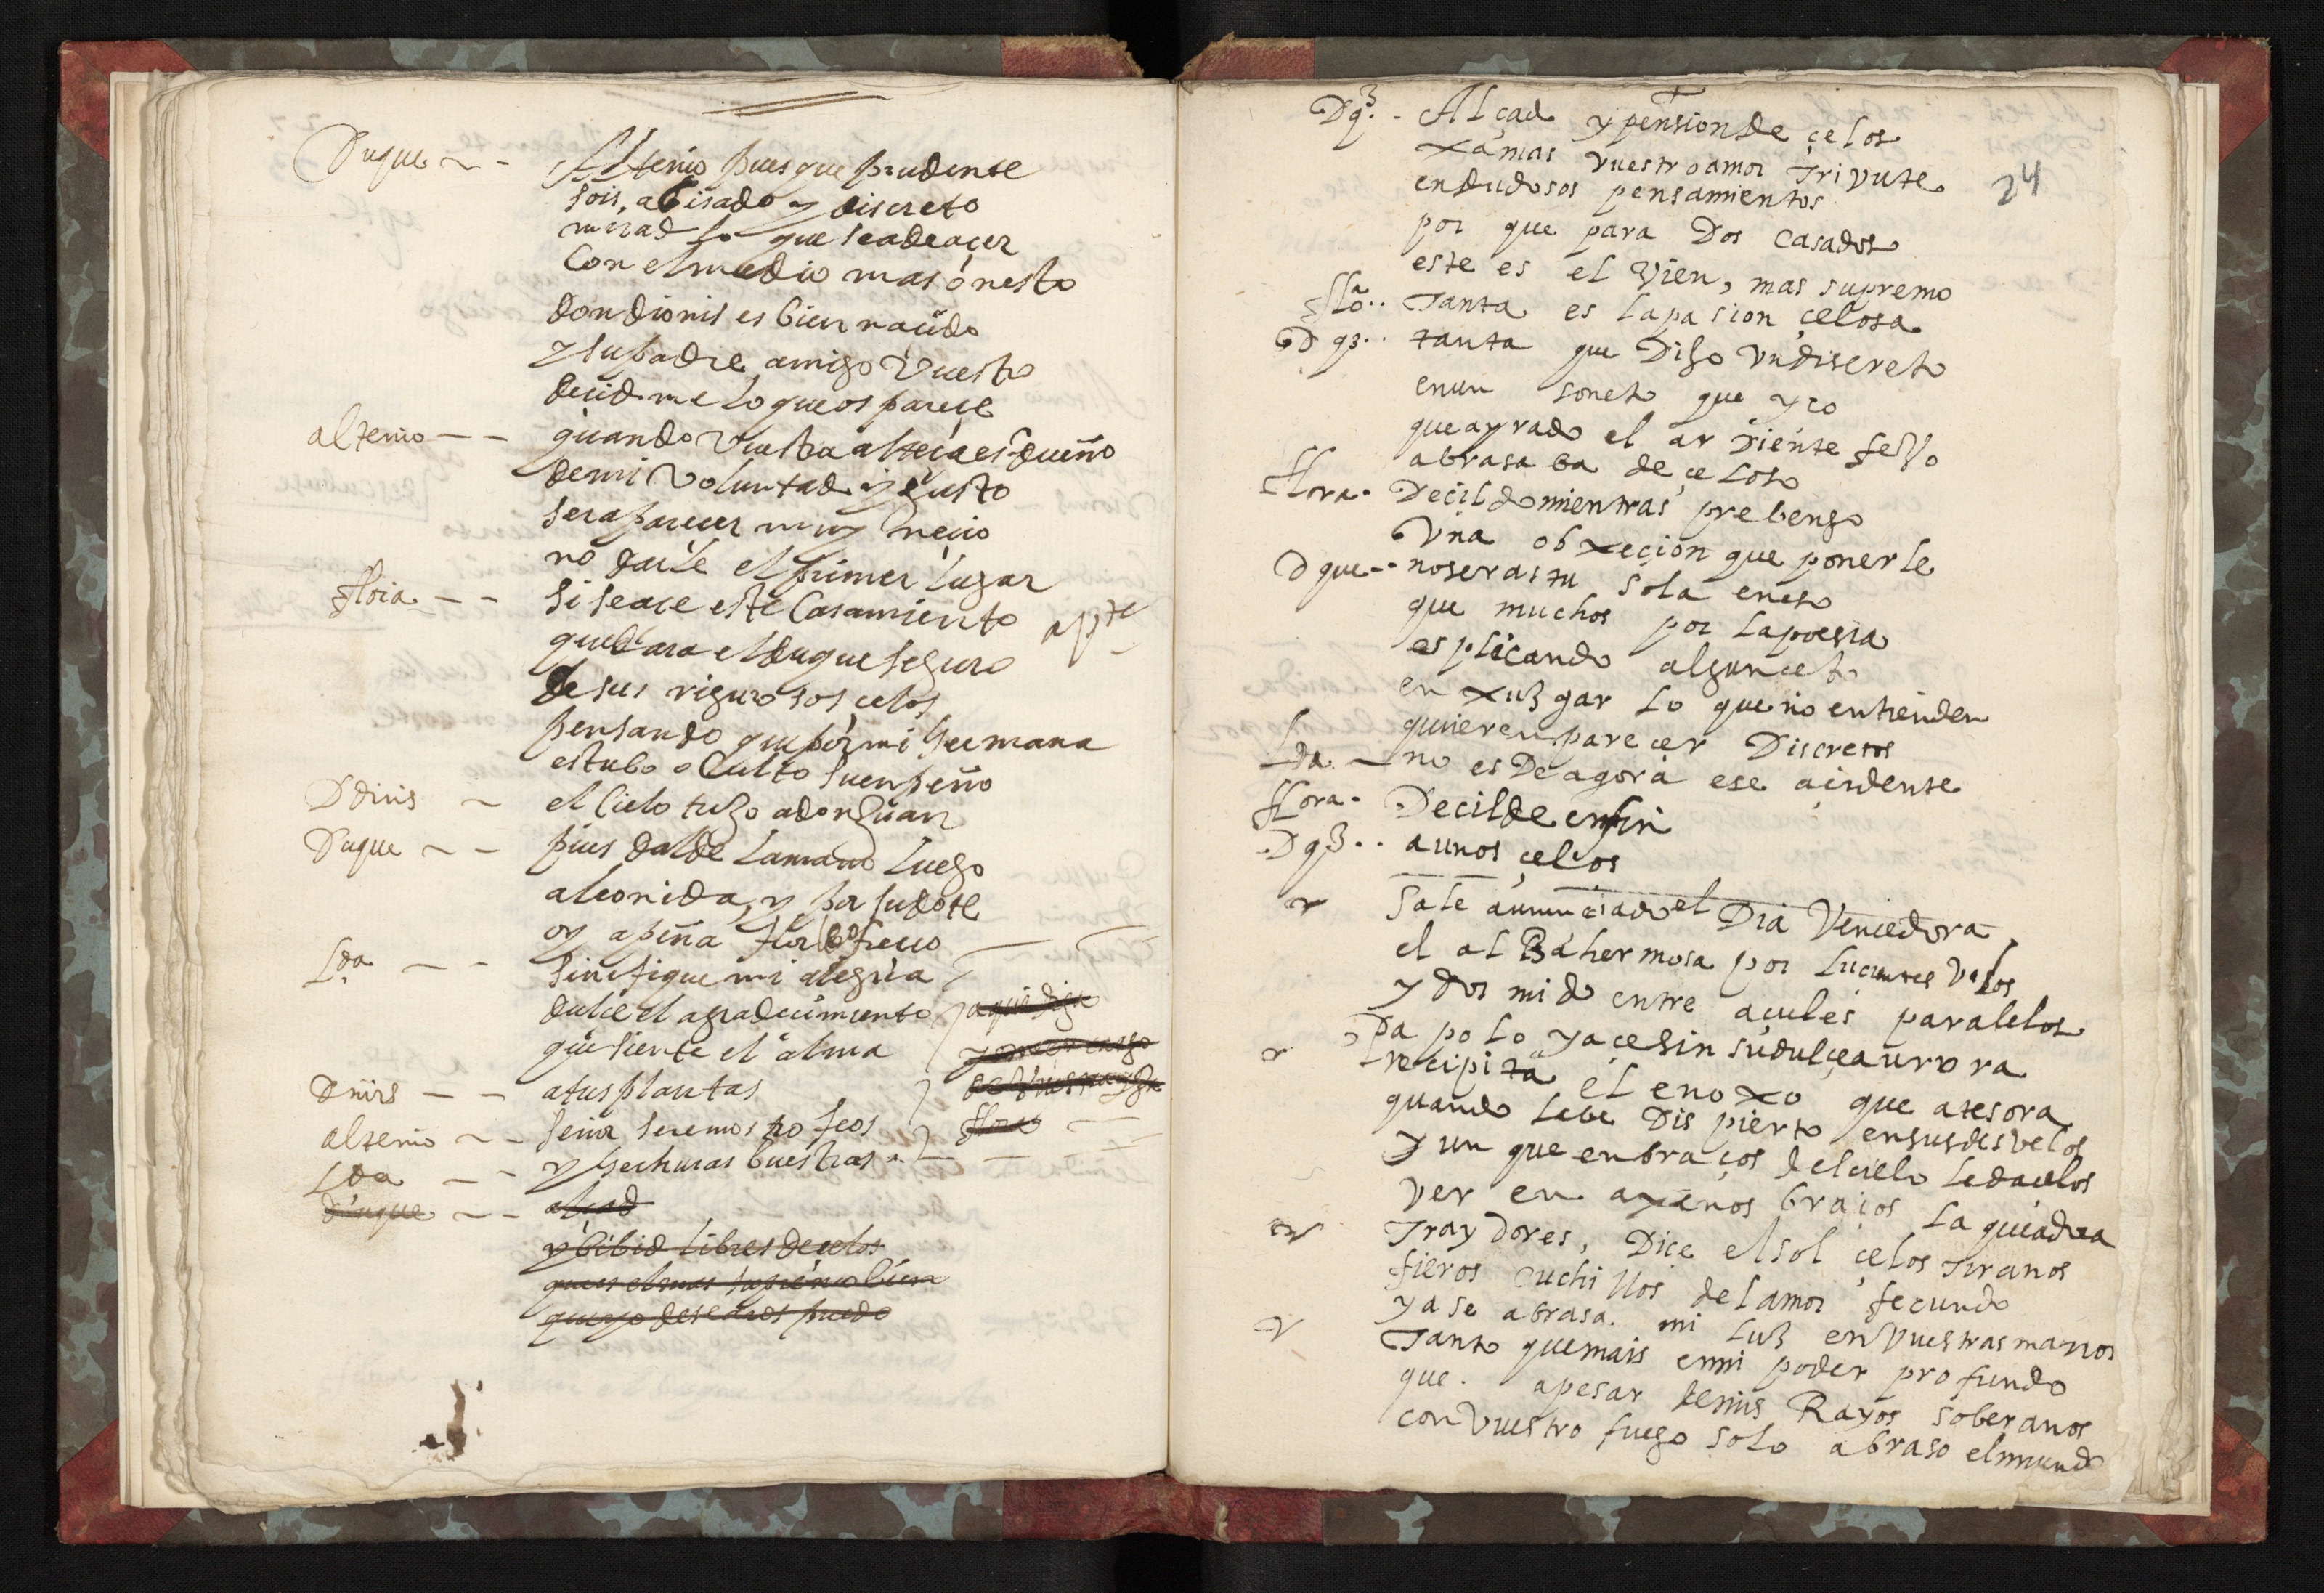 Duque — Altenio pues que prudente
sois, abisado y discreto
mirad lo que seadeaçer
Con el medio mas onesto
don dionis es bien naçido
y su padre amigo Vuestro
decidme lo que os pareçe
altenio — quando Vuestra alteça es dueño
de mi Voluntad y gusto
sera pareçer muy neçio
no darle el primer lugar
flora — si seaçe este Casamiento apte
quedara el duque seguro
de sus rigurosos çelos
pensando que por mi hermana
estubo oculto su enpeño
D dinis — el Cielo truxo a don Juan
Duque — pues dalde la mano luego
a leonida, y por su dote
os apiña
Lda — sinifique mi alegria
dulce el agradeçimiento aqui diga
que siente el alma
dnis — a tus plantas
altenio — señor seremos flora
Lda — y hechuras buestras
duque — alçad
y bibid libres de çelos
que es el mas supremo bien
que yo desearos puedo
24
Dq3.. Alçad y pension de çelos
xamas vuestro amor Trivute
en dudosos pensamientos
por que para Dos casados
este es el Vien, mas supremo
floa.. Tanta es la pasion çelosa
D q3.. tanta que Dixo vn discreto
en un soneto que yço
que ayrado el ardiente febo
abrasaba de çeloso
flora. Deçildo mientras prebengo
Vna obxeçion que ponerle
Dque.. no seras tu sola en eso
que muchos por la poesia
esplicando algun
en xuzgar lo que no entienden
quieren pareçer Discretos
Lda — no es De agora ese açidente
flora. Deçilde en fin
D q3.. a unos çelos
Sale anunciado el Dia Vencedora
el alBa hermosa por lucientes Velos
y dormido entre açules paralelos
Da polo yaçe sin su dulçe aurora
recipita el enoxo que atesora
quando lebe Dispierto en sus desvelos
y un que en braços del çielo le da çelos
ver en axenos braços la que adora
Traydores, Dice el sol çelos Tiranos
fieros cuchillos del amor fecundo
ya se abrasa. mi luz en vuestras manos
Tanto quemais en mi poder profundo
que. apesar de mis Rayos soberanos
con Vuestro fuego solo abraso el mundo